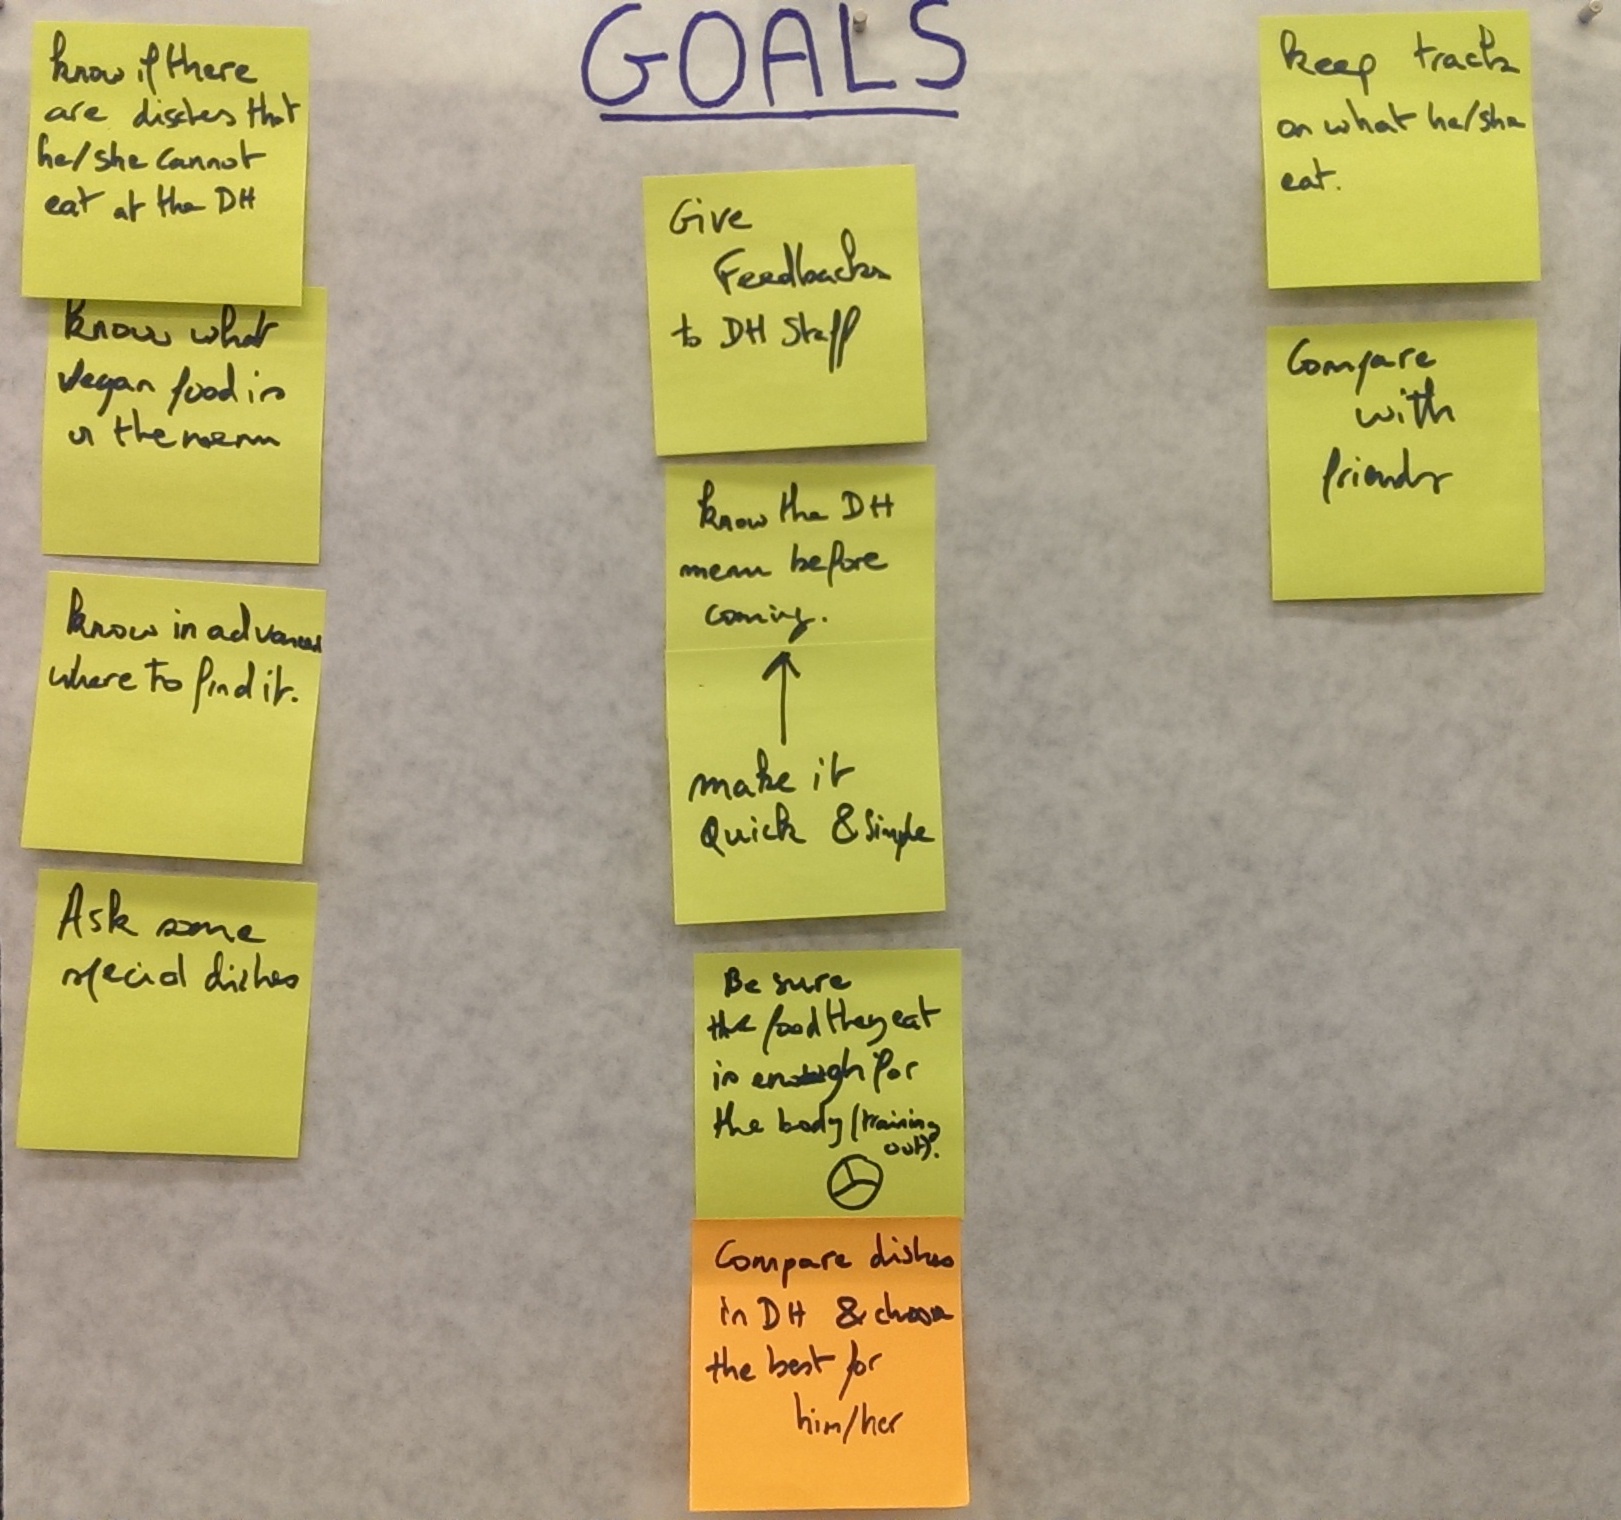 GOALS
know if there
are disches that
he/she cannot
eat at the DH
Know what
vegan food is
on the menu
Know in advance
where to find it.
Ask some
special dishes
Give
Feedbacks
to DH Staff
know the DH
menu before
coming.
make it
Quick & simple
Be sure
the food they eat
is enough for
the body (training
out).
Compare dishes
in DH & choose
the best for
him/her
keep track
on what he/she
eat.
Compare
with
friends